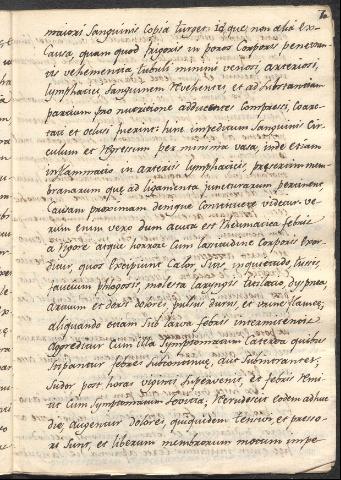 7
maiori Sanguinis Copia turget. id que non alia ex
Causa, quam quod frigoris in poros Corporis penetran
tis vehementia, tubuli minimi venosi, arteriosi,
lymphatici, Sanguinem revehentes, et ad Substantiam
partium pro nutritione adducentes Compressi, Coarc
tati et oclusi fuerint: hinc impeditum Sanguinis Cir
culum et regressum per minima vasa, inde etiam
inflammatio in arteriis lymphaticis, praesertim mem
branarum que ad ligamenta juncturarum pertinent
Causam proximam denique Constituere videtur. ve
rum enim vero dum acuta est rheumatica febris
a rigore atque horrore Cum lassitudine Corporis exor
ditur, quos excipiunt Calor, Sitis, inquietudo, tussis,
faucium phlogosis, molesta laryngis dyspnea,
artuum et dorsi dolores, pulsus durus, et urine flamee;
aliquando etiam Sub larva febris intermitentis
agreditur Cum illa Symptomatum Caterva quibus
Stipantur febres Subcontinue, aut Subintrantes;
Sudor post horas viginti Supervenit, et febris remi
tit Cum Symptomatum Sevitia; recrudescit eodem adhuc
die, augentur dolores, quiquidem tensivi, et presso
rii Sunt, et liberum membrorum motum impe